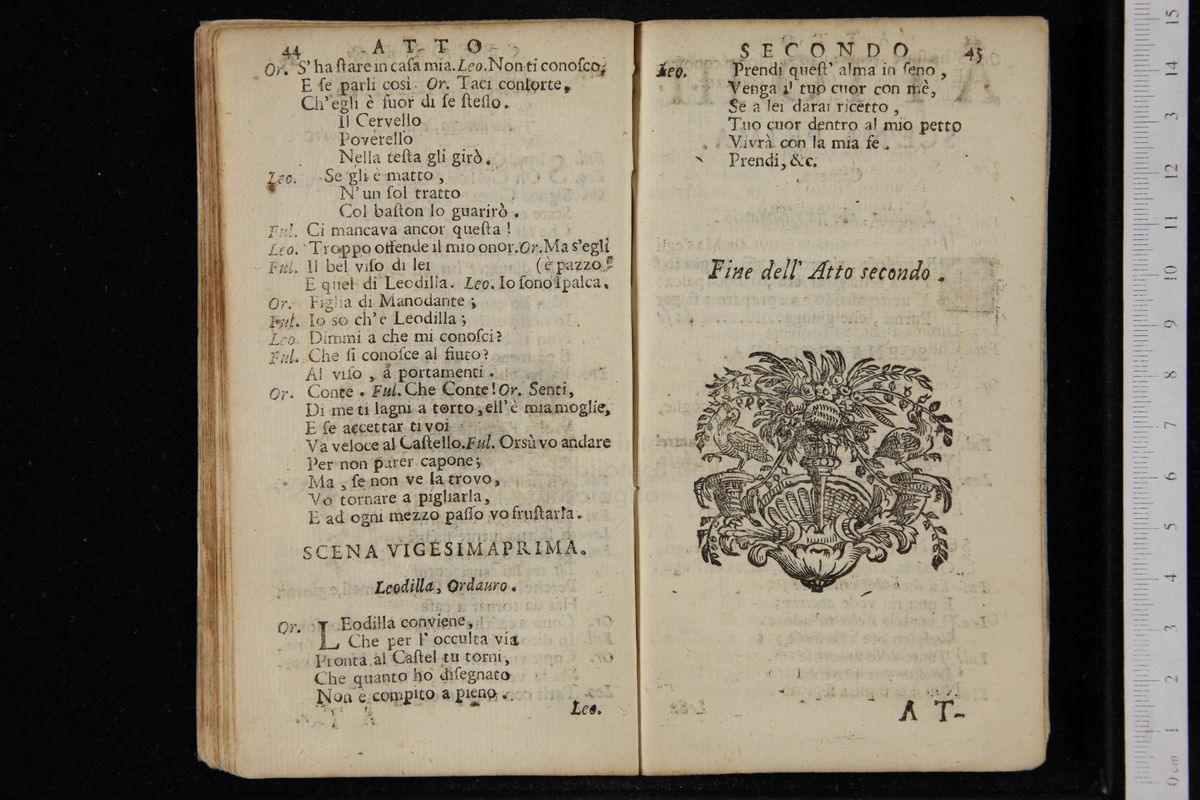 44 ATTO
Or. S' ha ſtare in caſa mia. Leo. Non ti conoſco;
E ſe parli così. Or. Taci conſorte,
Ch'egli è fuor di ſe ſteſſo.
Il Cervello
Poverello
Nella teſta gli girò.
Leo. Se gli è matto,
N' un ſol tratto
Col baſton lo guarirò.
Ful. Ci mancava ancor queſta!
Leo. Troppo offende il mio onor. Or. Ma s'egli
Ful. Il bel viſo di lei (è pazzo!
E quel di Leodilla. Leo. Io ſono ſpalca.
Or. Figlia di Manodante;
Ful. Io so ch'e Leodilla;
Leo. Dimmi a che mi conoſci?
Ful. Che ſi conoſce al fiuto?
Al viſo, a portamenti.
Or. Conte. Ful. Che Conte! Or. Senti,
Di me ti lagni a torto, ell' è mia moglie,
E ſe accettar ti voi
Va veloce al Caſtello. Ful. Orsù vo andare
Per non parer capone;
Ma, ſe non ve la trovo,
Vo tornare a pigliarla,
E ad ogni mezzo paſſo vo fruſtarla.
SCENA VIGESIMAPRIMA.
Leodilla, Ordauro.
Or. LEodilla conviene,
Che per l' occulta via
Pronta al Caſtel tu torni,
Che quanto ho diſegnato
Non è compito a pieno.
Leo.
SECONDO 45
Leo. Prendi queſt' alma in ſeno,
Venga il tuo cuor con mè,
Se a lei darai ricetto,
Tuo cuor dentro al mio petto
Vivrà con la mia fe.
Prendi, &c.
Fine dell' Atto secondo.
AT-
0 cm 1 2 3 4 5 6 7 8 9 10 11 12 13 14 15